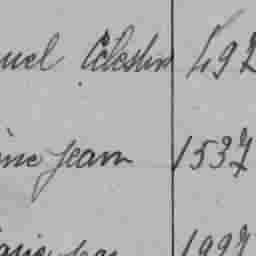 uel Célestin 492
ine Jean 1537
1997